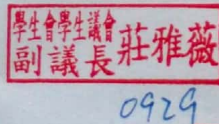 學生會學生議會
副議長莊雅薇
0929